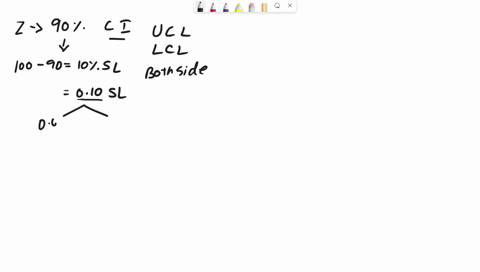 Z → 90% CI
UCL
LCL
100 - 90 = 10% SL
Both side
= 0.10 SL
0.0